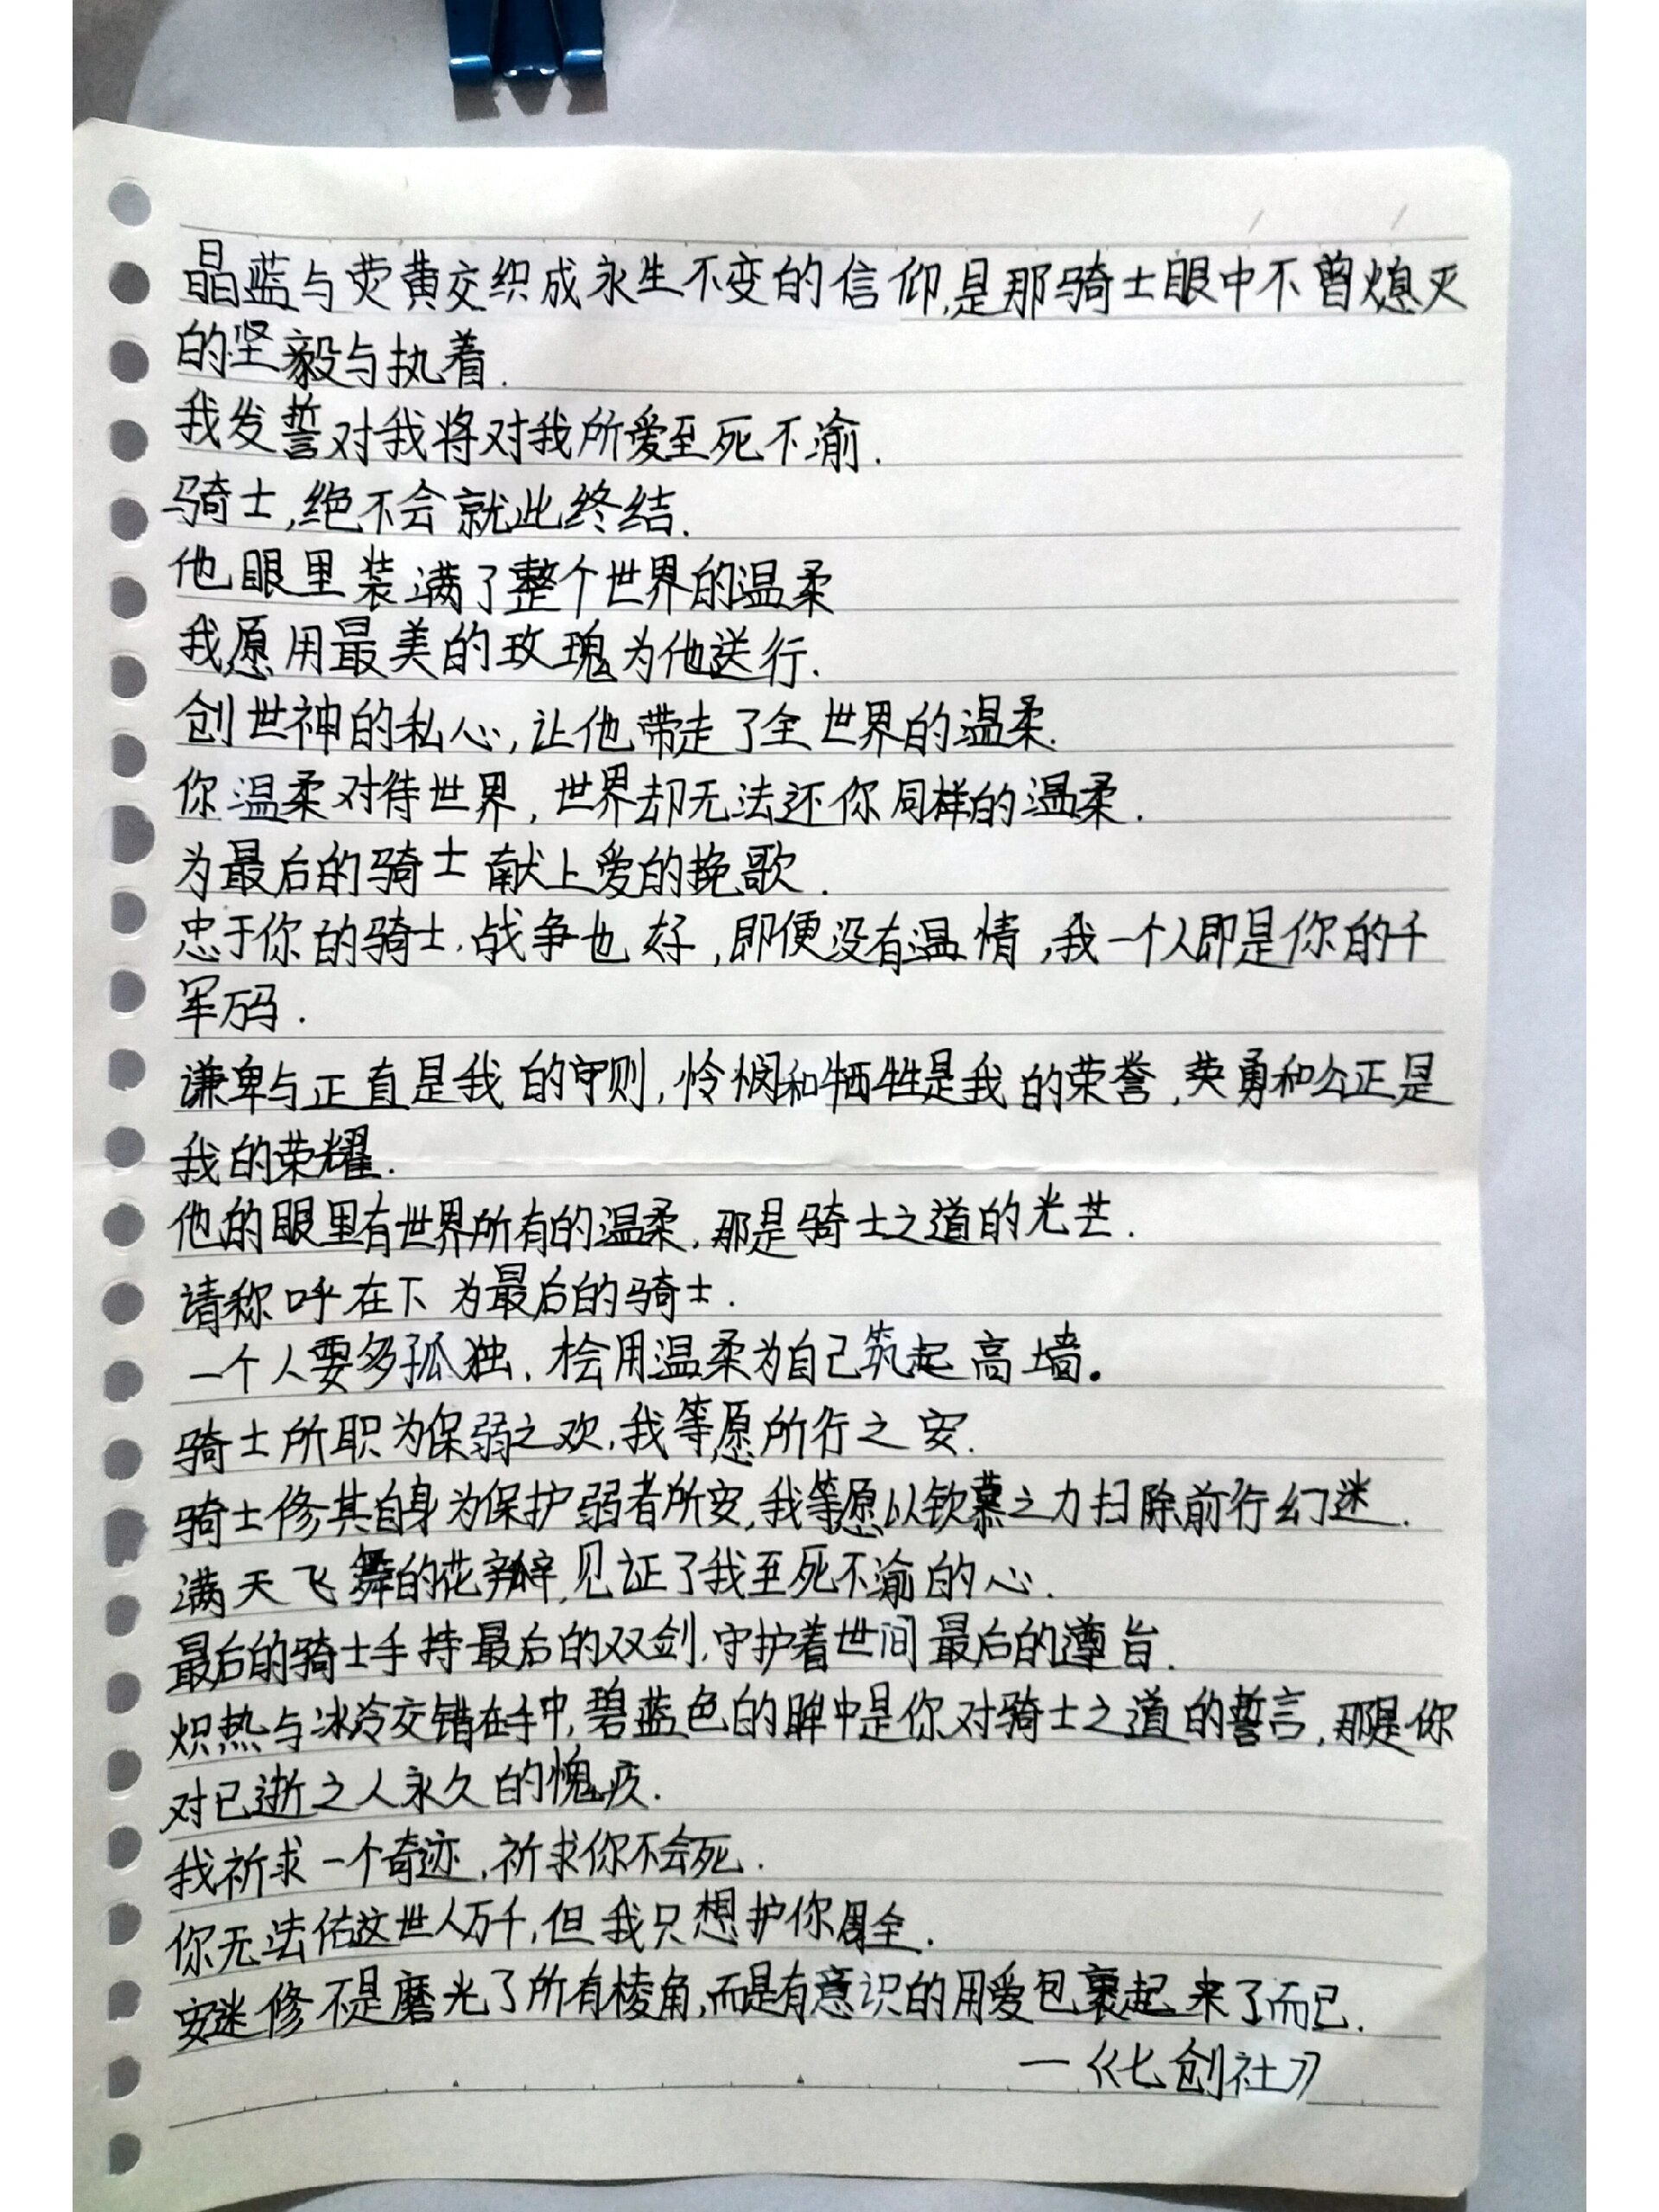 晶蓝与荧黄交织成永生不变的信仰,是那骑士眼中不曾熄灭
的坚毅与执着.
我发誓对我将对我所爱至死不渝.
骑士,绝不会就此终结.
他眼里装满了整个世界的温柔
我愿用最美的玫瑰为他送行.
创世神的私心,让他带走了全世界的温柔.
你温柔对待世界,世界却无法还你同样的温柔.
为最后的骑士献上爱的挽歌.
忠于你的骑士,战争也好,即便没有温情,我一个人即是你的千
军万码.
谦卑与正直是我的守则,怜悯和牺牲是我的荣誉,英勇和公正是
我的荣耀.
他的眼里有世界所有的温柔,那是骑士之道的光芒.
请称呼在下为最后的骑士.
一个人要多孤独,才会用温柔为自己筑起高墙。
骑士所职为保弱之欢,我等愿所行之安.
骑士修其自身为保护弱者所安,我等愿以钦慕之力扫除前行幻迷.
满天飞舞的花瓣,见证了我至死不渝的心.
最后的骑士手持最后的双剑,守护着世间最后的遵旨.
炽热与冰冷交错在手中,碧蓝色的眸中是你对骑士之道的誓言,那是你
对已逝之人永久的愧疚.
我祈求一个奇迹,祈求你不会死.
你无法佑这世人万千,但我只想护你周全.
安迷修不是磨光了所有棱角,而是有意识的用爱包裹起来了而已.
—《七创社》